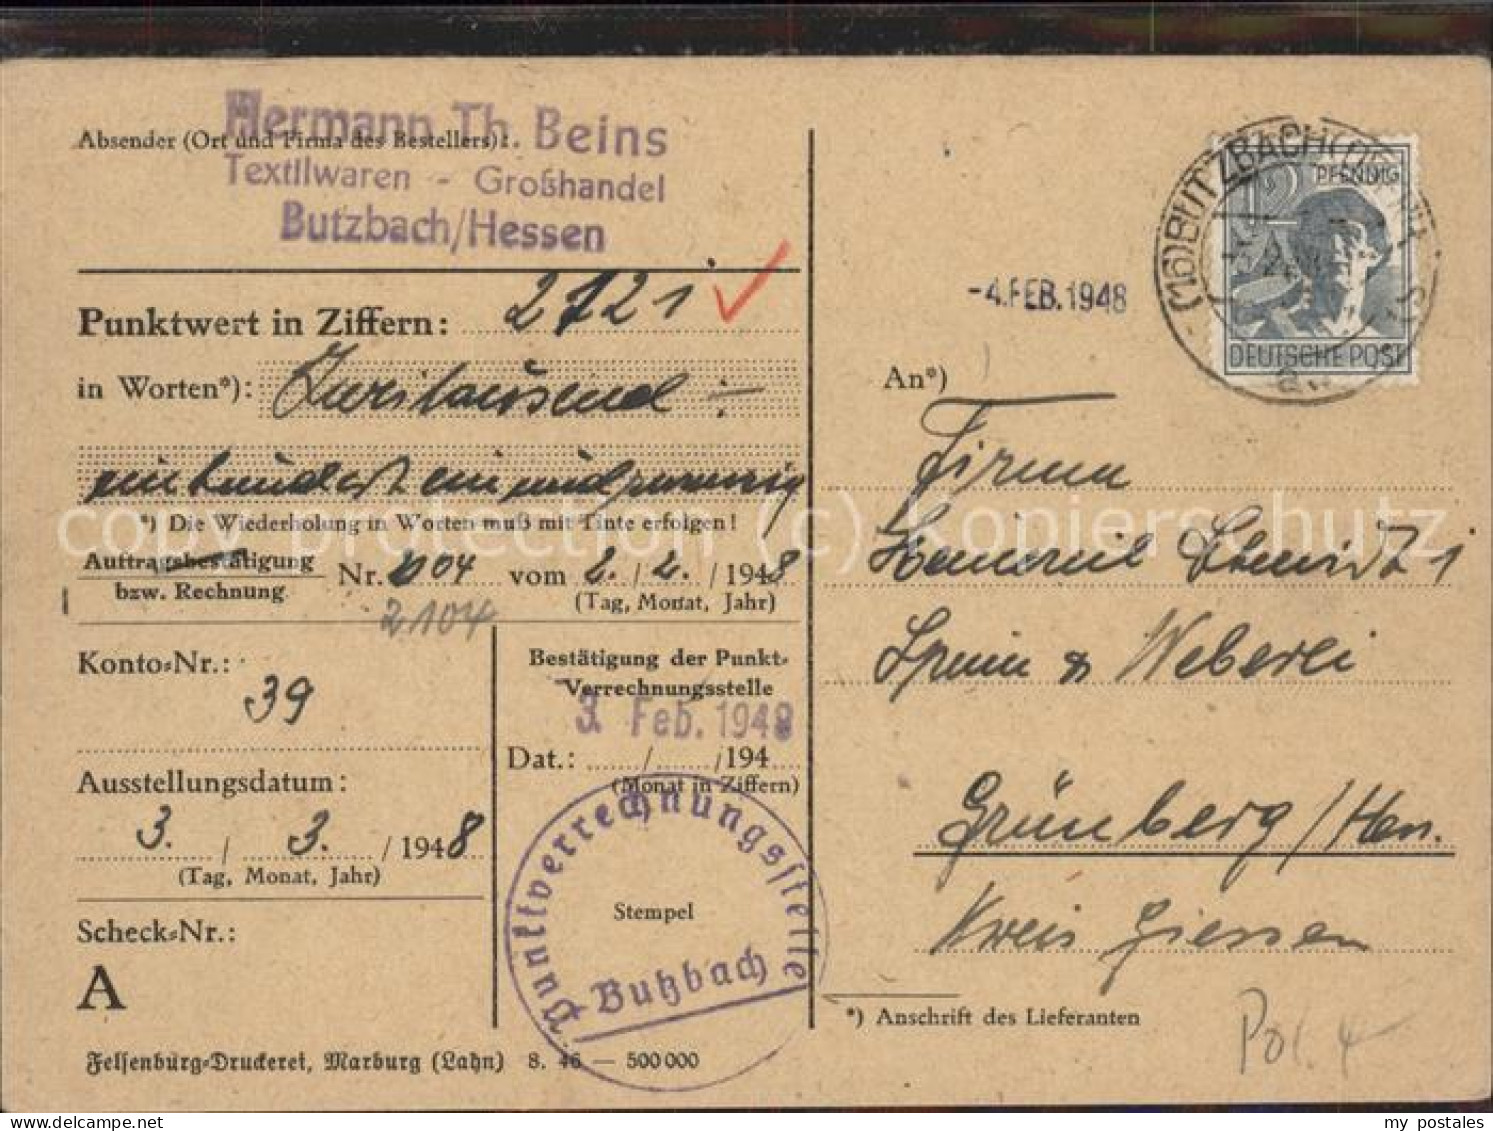 Hermann Th. Beins
Absender (Ort und Firma des Bestellers):
Textilwaren - Großhandel
Butzbach/Hessen
Punktwert in Ziffern: 2121
in Worten*): Zweitausend :-
einhundert ein und zwanzig
*) Die Wiederholung in Worten muß mit Tinte erfolgen!
Auftragsbestätigung
bzw. Rechnung
Nr. 2104 vom 2. / 2. / 1948
(Tag, Monat, Jahr)
2104
Konto-Nr.:
39
Ausstellungsdatum:
3. / 3. / 1948
(Tag, Monat, Jahr)
Scheck-Nr.:
A
Bestätigung der Punkt-
Verrechnungsstelle
3. Feb. 1948
Dat.: / /194
(Monat in Ziffern)
Punktverrechnungsstelle
Stempel
Butzbach
Felsenburg-Druckerei, Marburg (Lahn) 8. 46 — 500 000
(16) BUTZBACH
12 PFENNIG
DEUTSCHE POST
-4.FEB.1948
An*)
Firma
Schmidt
Weberei
Grünberg/Hess.
Kreis Giessen
*) Anschrift des Lieferanten
copy protection (c) Kopierschutz
my postales